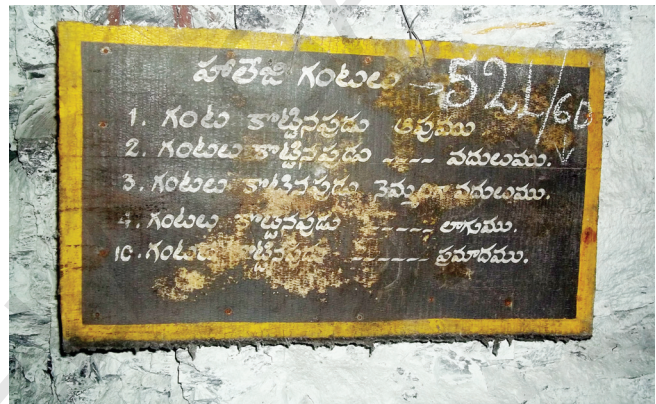 హాలేజి గంటలు 521/60
1. గంట కొట్టినపుడు ఆపుము
2. గంటలు కొట్టినపుడు ---- వదులుము.
3. గంటలు కొట్టినపుడు నెమ్మదిగా వదులుము.
4. గంటలు కొట్టినపుడు ----- లాగుము.
10. గంటలు కొట్టినపుడు ------ ప్రమాదము.